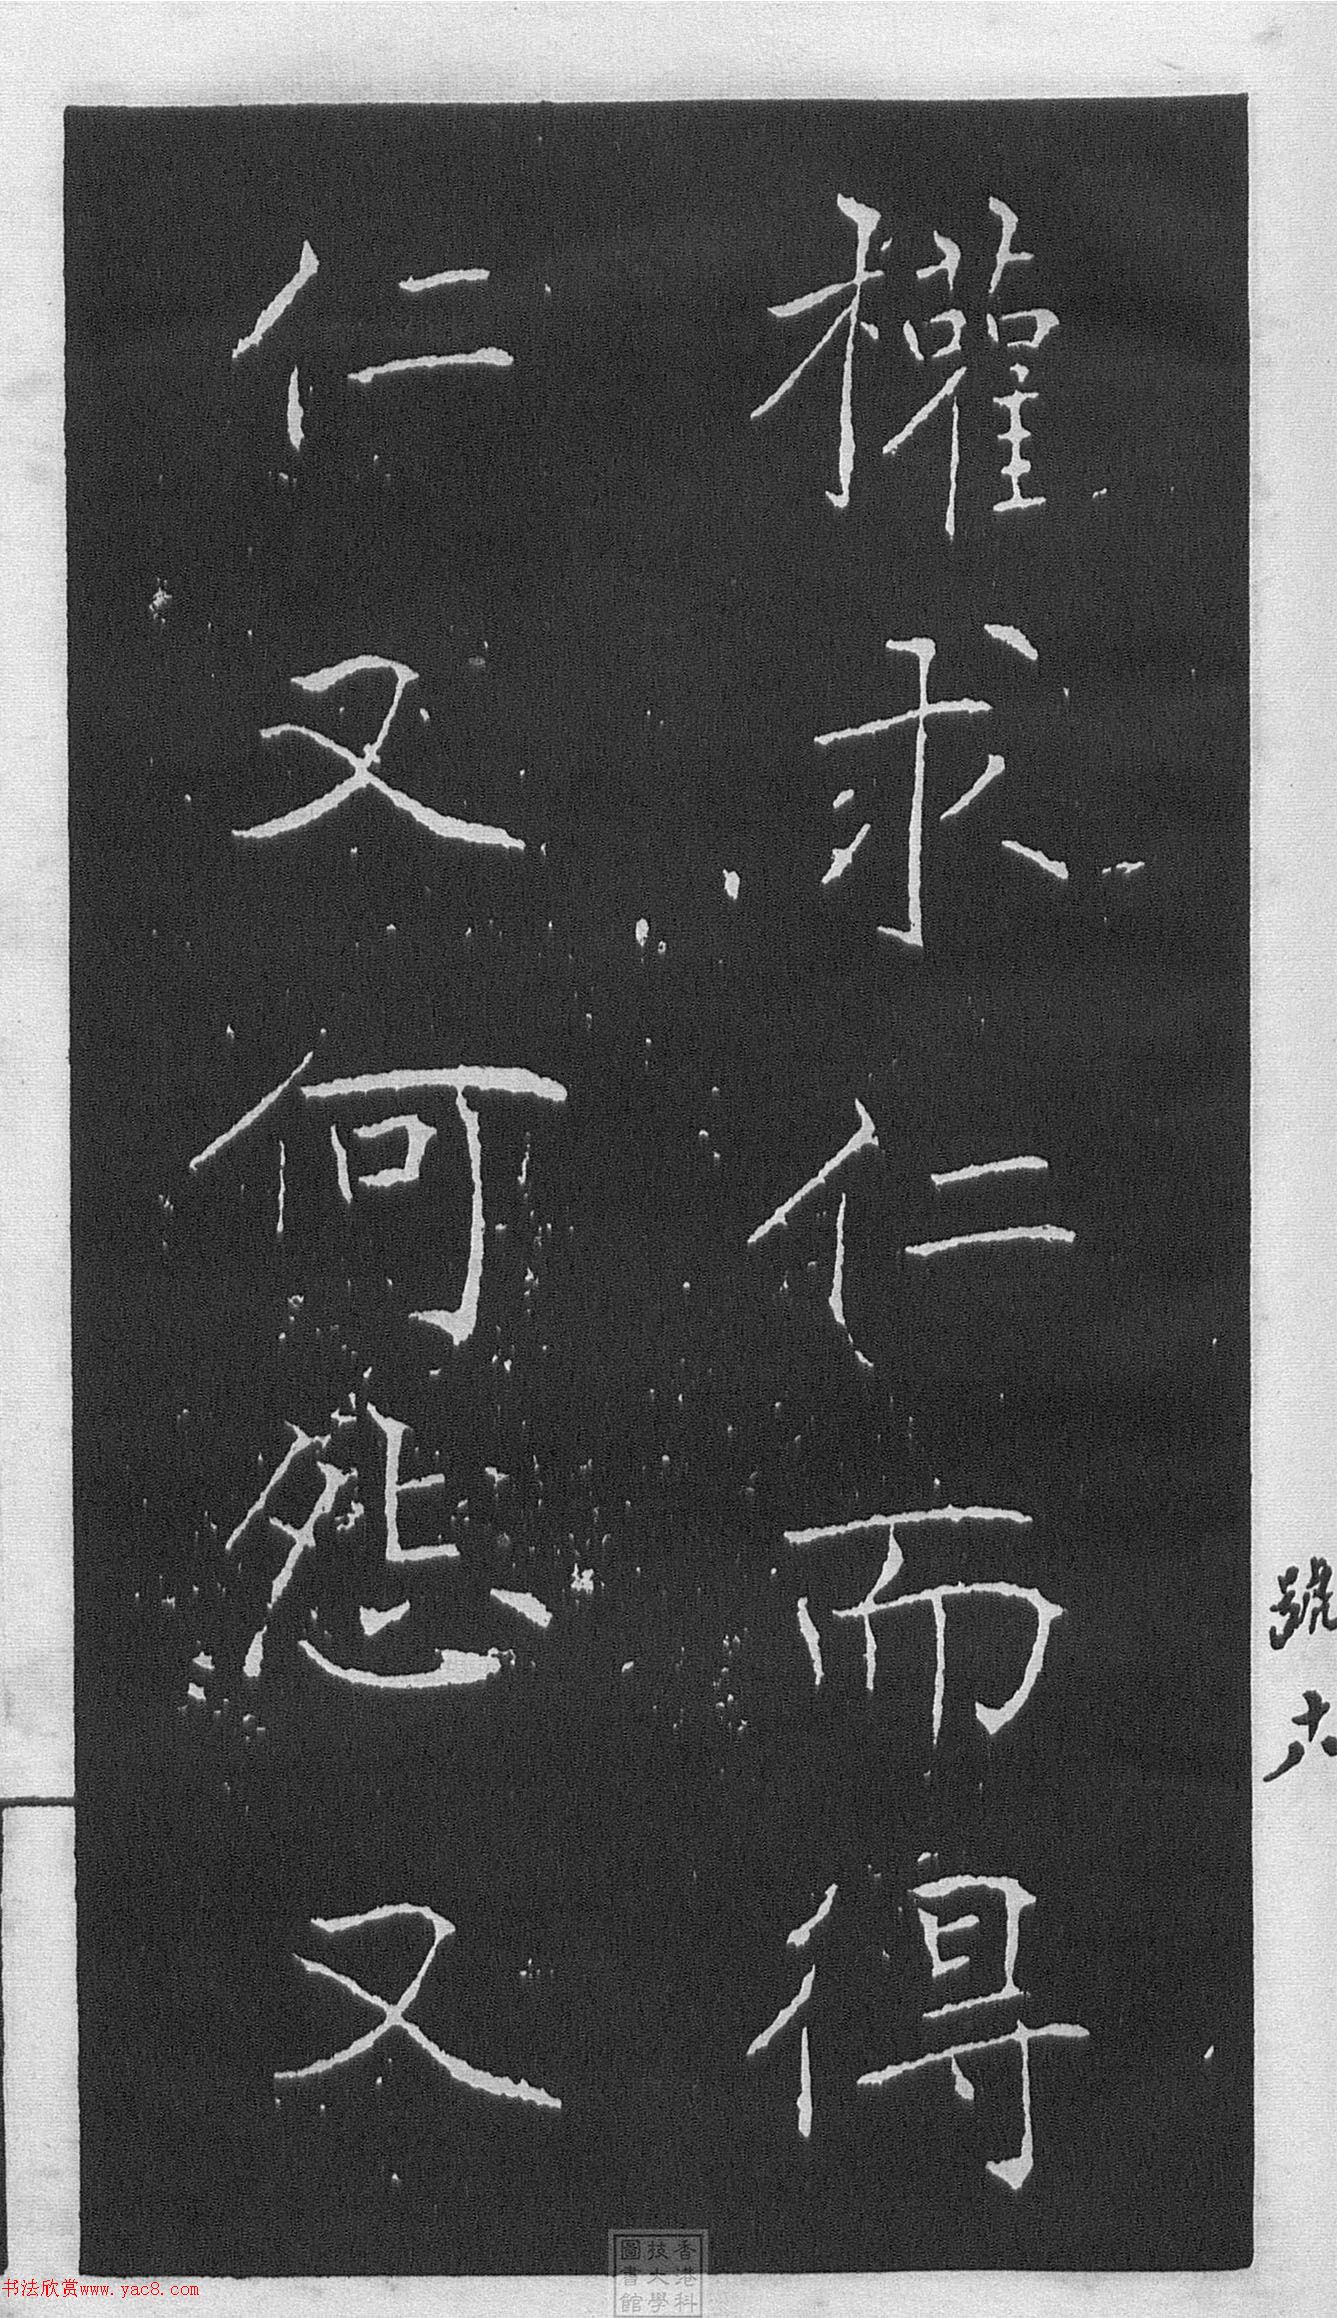 權求仁而得
仁又何怨又
號十六
香港科
技大學
圖書館
书法欣赏www.yac8.com